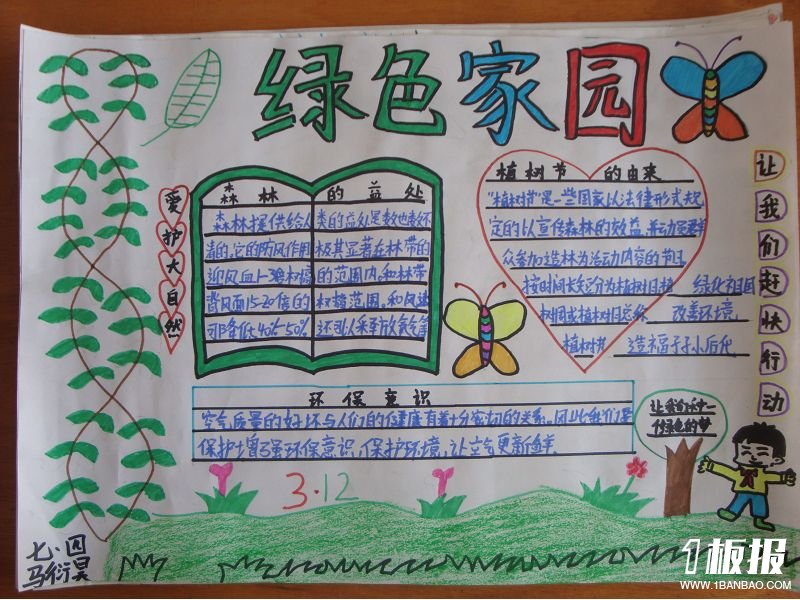 绿色家园
爱护大自然
森林的益处
森林提供给人类的益处是数也数不
清的,它的防风作用极其显著在林带的
迎风面 的范围内,和林带
背风面15-20倍的 范围,和风速
可降低40%-50%
植树节的由来
"植树节"是一些国家以法律形式规
定的以宣传森林的效益,并动员群
众参加造林为活动内容的节日
按时间长短分为植树日植
树周或植树月总称
植树节
绿化祖国
改善环境
造福于子小后代
让我们赶快行动
环保意识
空气质量的好坏与人们的健康有着十分密切的关系,因此我们要
保护增强环保意识,保护环境,让空气更新鲜
让我们来一
个绿色的梦
3·12
七·四
马衍昊
1板报
WWW.1BANBAO.COM